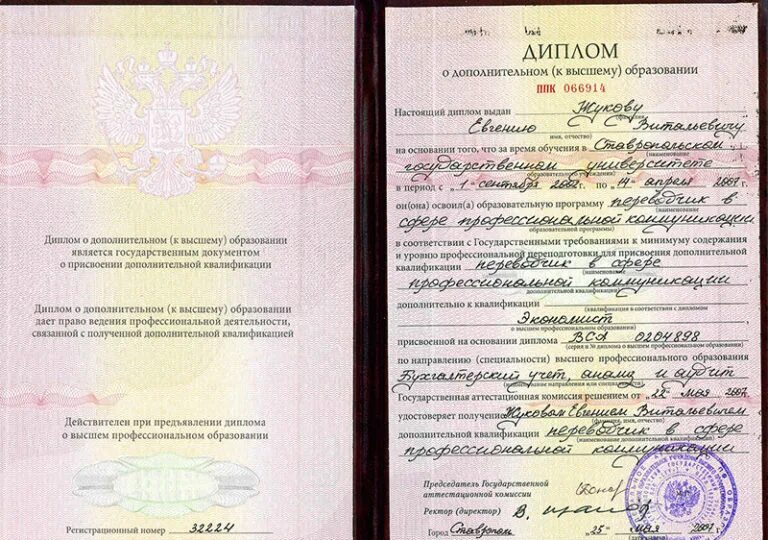 Диплом о дополнительном (к высшему) образовании
является государственным документом
о присвоении дополнительной квалификации
Диплом о дополнительном (к высшему) образовании
дает право ведения профессиональной деятельности,
связанной с полученной дополнительной квалификацией
Действителен при предъявлении диплома
о высшем профессиональном образовании
Регистрационный номер 32224
ДИПЛОМ
о дополнительном (к высшему) образовании
ППК 066914
Настоящий диплом выдан Жукову
(фамилия,
Евгению Витальевичу
имя, отчество)
на основании того, что за время обучения в Ставропольском
(наименование
государственном университете
образовательного учреждения)
в период с „1“ сентября 2002 г. по „14“ апреля 2007 г.
он(она) освоил(а) образовательную программу переводчик в
(наименование
сфере профессиональной коммуникации
образовательной программы)
в соответствии с Государственными требованиями к минимуму содержания
и уровню профессиональной переподготовки для присвоения дополнительной
квалификации переводчик в сфере
(наименование
профессиональной коммуникации
дополнительной квалификации)
дополнительно к квалификации
(квалификация в соответствии с дипломом
Экономист
о высшем профессиональном образовании)
присвоенной на основании диплома ВСА 0204898
(серия и № диплома о высшем профессиональном образовании)
по направлению (специальности) высшего профессионального образования
Бухгалтерский учет, анализ и аудит
(наименование направления или специальности)
Государственная аттестационная комиссия решением от „22“ мая 2007
удостоверяет получение Жуковым Евгением Витальевичем
(фамилия, имя, отчество)
дополнительной квалификации переводчик в сфере
(наименование дополнительной квалификации)
профессиональной коммуникации
Председатель Государственной
аттестационной комиссии
Ректор (директор)
Город Ставрополь „25“ мая 2007 г.